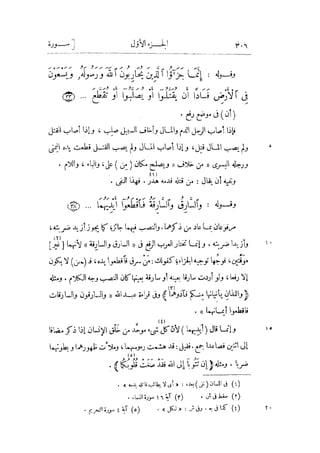 ٣٠٦ الجزء الأول [ سورة
وقوله : إِنَّمَا جَزَٰٓؤُا۟ ٱلَّذِينَ يُحَارِبُونَ ٱللَّهَ وَرَسُولَهُۥ وَيَسْعَوْنَ
فِى ٱلْأَرْضِ فَسَادًا أَن يُقَتَّلُوٓا۟ أَوْ يُصَلَّبُوٓا۟ أَوْ تُقَطَّعَ ... ٣٣
( أن ) فى موضع رفع .
فإذا أصاب الرجل الدم والمال وأخاف السبيل صلب ، وإذا أصاب القتل
٥ ولم يصب المال قتل ، وإذا أصاب المال ولم يصب القتل قطعت يده اليمنى
ورجله اليسرى « من خلاف » ويصلح مكان ( من ) على ، والباء ، واللام .
ونفيه أن يقال : من قتله فدمه هدر . فهذا النفى .
وقوله : وَٱلسَّارِقُ وَٱلسَّارِقَةُ فَٱقْطَعُوٓا۟ أَيْدِيَهُمَا ... ٣٨
مرفوعان بما عاد من ذكرهما . والنصب فيهما جائز ؛ كما يجوز أزيد ضربته ،
١٠ وأزيدا ضربته . وإنما تختار العرب الرفع فى « السارق والسارقة » لأنهما [ غير ]
موقّتين ، فوجّها توجيه الجزاء ؛ كقولك : من سرق فاقطعوا يده ، فـ ( من ) لا يكون
إلا رفعا ، ولو أردت سارقا بعينه أو سارقة بعينها كان النصب وجه الكلام . ومثله
﴿ واللذان يأتيانها منكم فآذوهما ﴾ وفى قراءة عبد الله « والسارقون والسارقات
فاقطعوا أيمانهما » .
١٥ وإنما قال ( أيديهما ) لأن كل شىء موحّد من خلق الإنسان إذا ذكر مضافا
إلى اثنين فصاعدا جمع . فقيل : قد هشمت رءوسهما ، وملأت ظهورهما و بطونهما
ضربا . ومثله ﴿ إن تتوبا إلى الله فقد صغت قلوبكما ﴾ .
(٢) سقط فى ش . (٣) آية ١٦ سورة النساء .
٢٠ (٤) كذا فى ج . وفى ش : « لكل » . (٥) آية ٤ سورة التحريم .